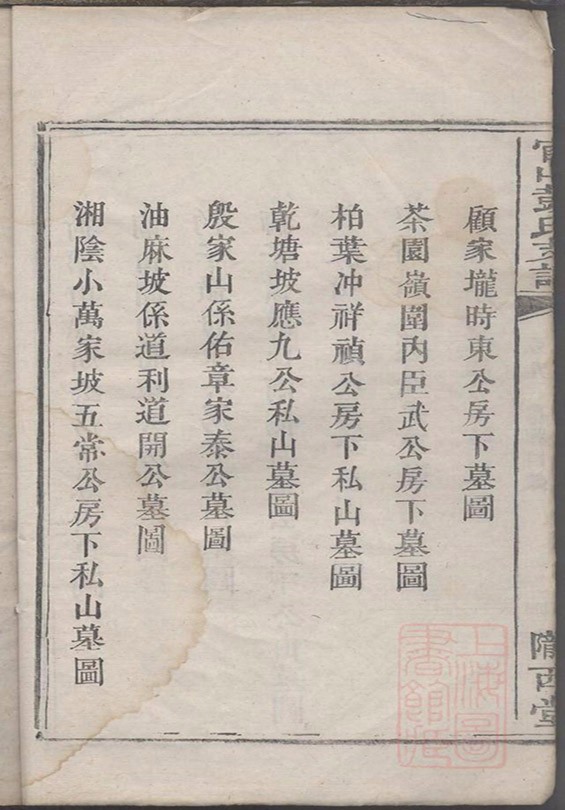 顧家壠時東公房下墓圖
茶園嶺圍内臣武公房下墓圖
柏葉冲祥禎公房下私山墓圖
乾塘坡應九公私山墓圖
殷家山係佑章家泰公墓圖
油麻坡係道利道開公墓圖
湘陰小萬家坡五常公房下私山墓圖
彭氏支譜
隴西堂
上海圖書館藏